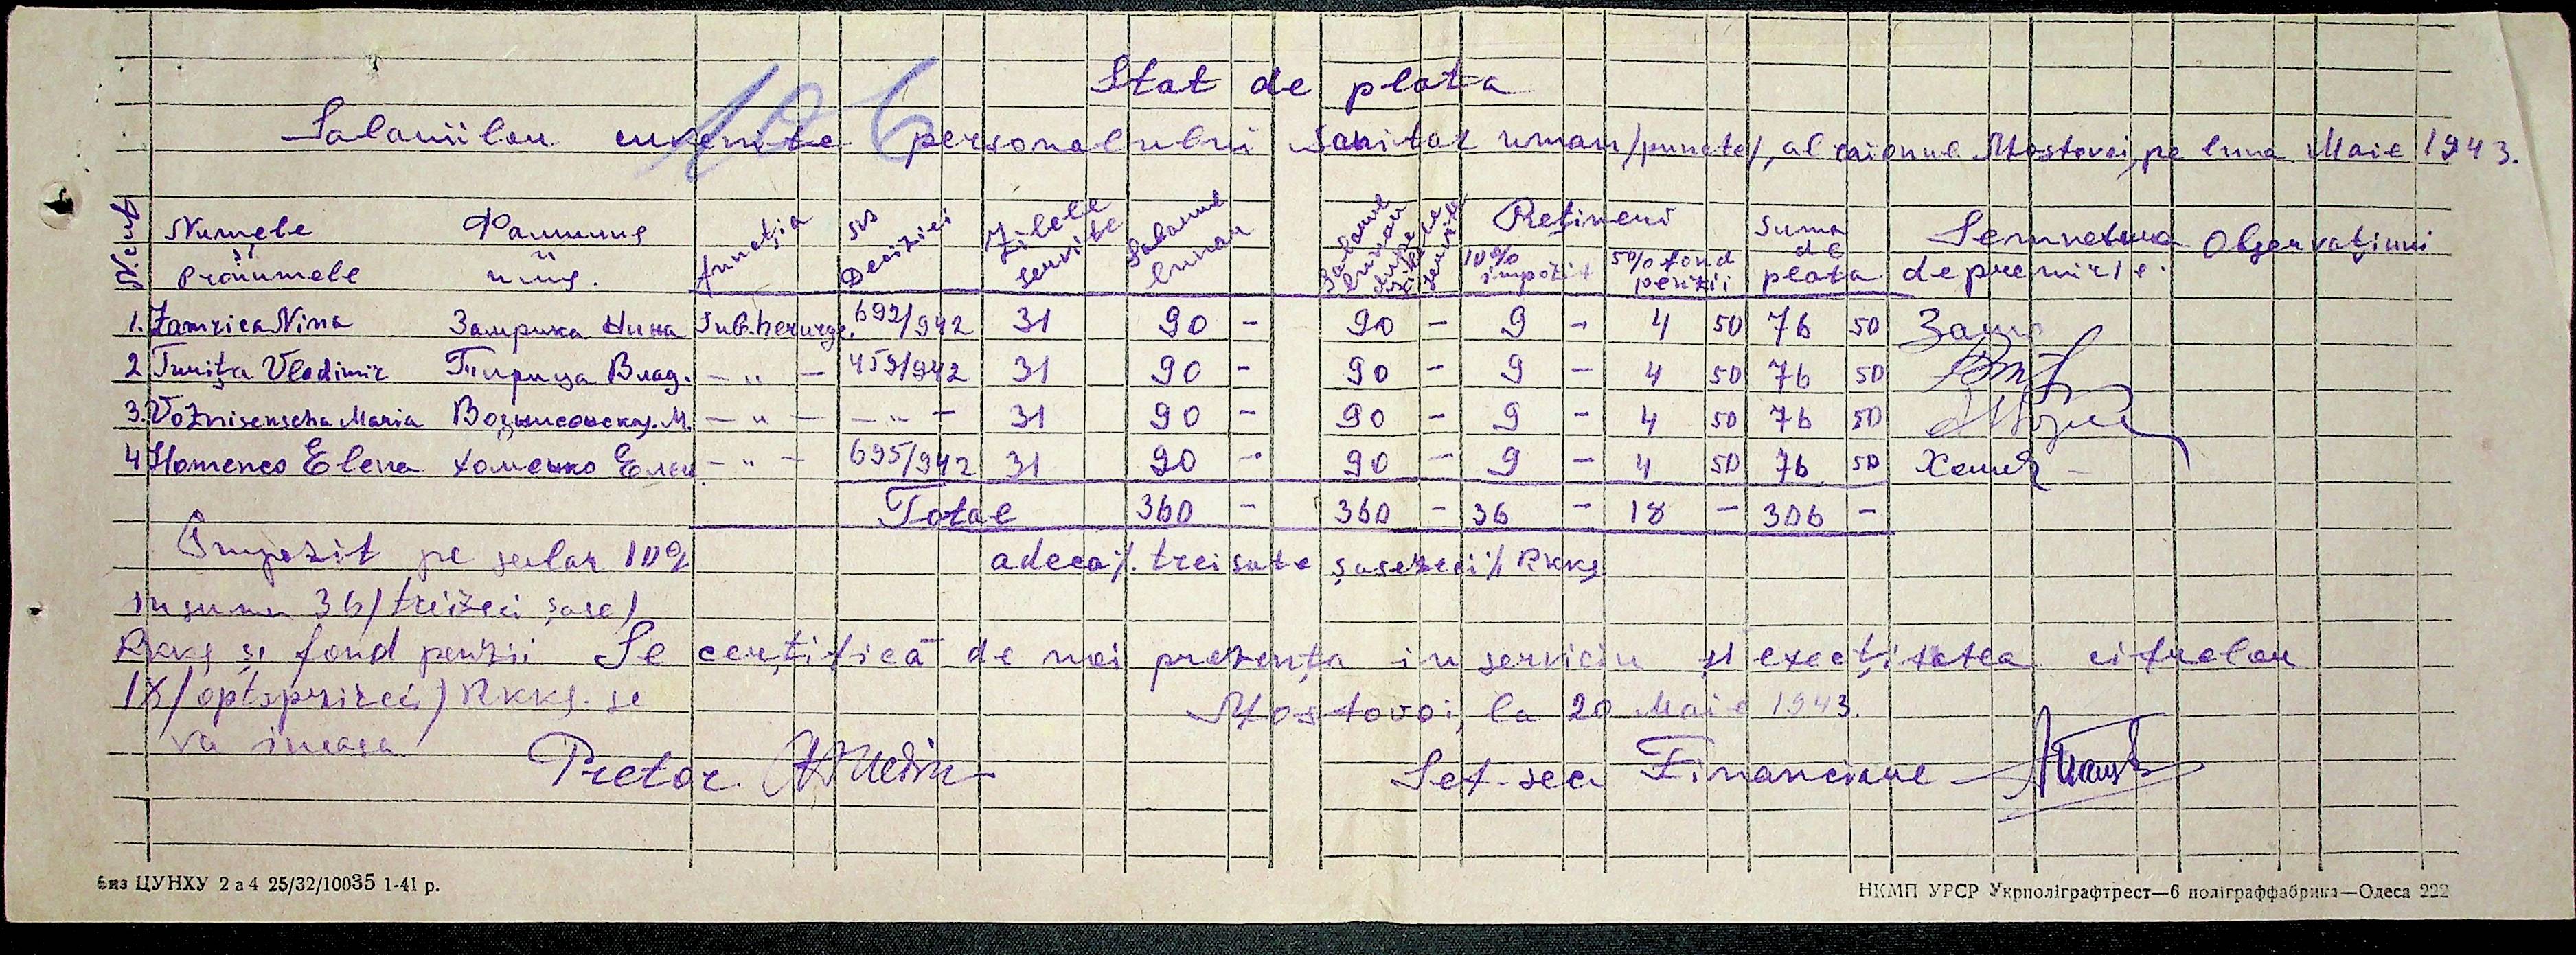 106
Stat de plata
Salariilor cuvenite personalului sanitar uman /puncte/, al raionul Mostovoi, pe luna Maie 1943.
N. crt Numele și Pronumele Фамилия и имя. funcția № Deciziei Zilele servite Salariul lunar Salariul lunar după zilele servite Rețineri 10% impozit 5% fond penzii Suma de plata Semnetura de premirie. Observațiuni
1. Zamrica Nina Замрика Нина Sub.herurge. 692/942 31 90 - 90 - 9 - 4 50 76 50 Замр
2 Tirița Vladimir Тирица Влад. - " - 459/942 31 90 - 90 - 9 - 4 50 76 50
3. Voznisenscha Maria Вознисенская. М. - " - - " - 31 90 - 90 - 9 - 4 50 76 50
4 Homenco Elena Хоменко Елен - " - 695/942 31 90 - 90 - 9 - 4 50 76 50 Хомен
Total 360 - 360 - 36 - 18 - 306 -
adeca /. trei sute șasezeci /. RKKS
Impozit pe salar 10%
in suma 36 / treizeci șase /
RKKS și fond penzii
18 / optsprizeci / RKKS. se
va incasa
Se certifică de noi prezența in serviciu și exectitatea cifrelor
Mostovoi, la 20 Maie 1943.
Pretor.
Sef-sec Financiare
Биз ЦУНХУ 2 а 4 25/32/10035 1-41 р.
НКМП УРСР Укрполіграфтрест—6 поліграффабрика—Одеса 222